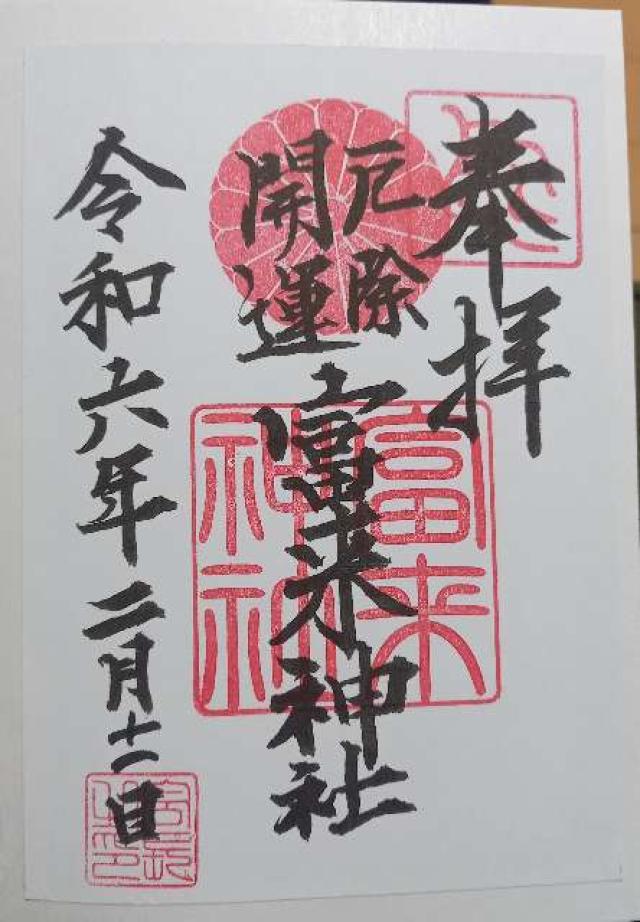 奉拝
厄除
開運
富来神社
令和六年二月十一日
富来
神社